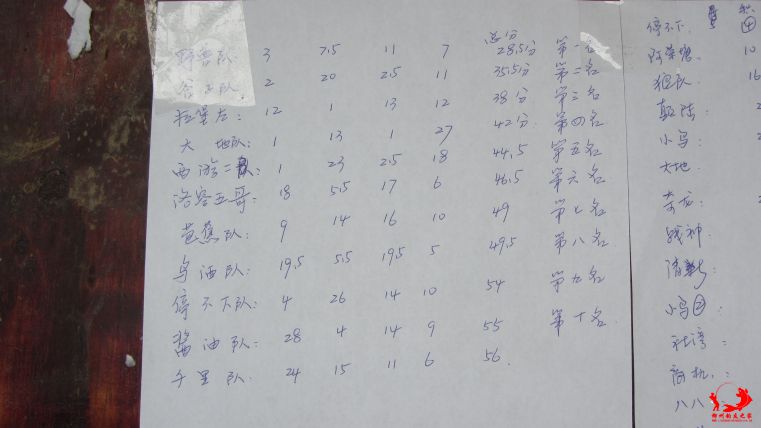 总分
野兽队: 3 7.5 11 7 28.5分 第一名
合山队 2 20 2.5 11 35.5分 第二名
拉堡左: 12 1 13 12 38分 第三名
大地队: 1 13 1 27 42分 第四名
西游二队: 1 23 2.5 18 44.5 第五名
洛容五哥: 18 5.5 17 6 46.5 第六名
芭蕉队: 9 14 16 10 49 第七名
鸟酒队: 19.5 5.5 19.5 5 49.5 第八名
停不下队: 4 26 14 10 54 第九名
酱油队: 28 4 14 9 55 第十名
千里队: 24 15 11 6 56.
停不下
④
10
狼队 16
小鸟
大地
战神
小鸟②
社湾:
商机:
八八
柳州钓友之家